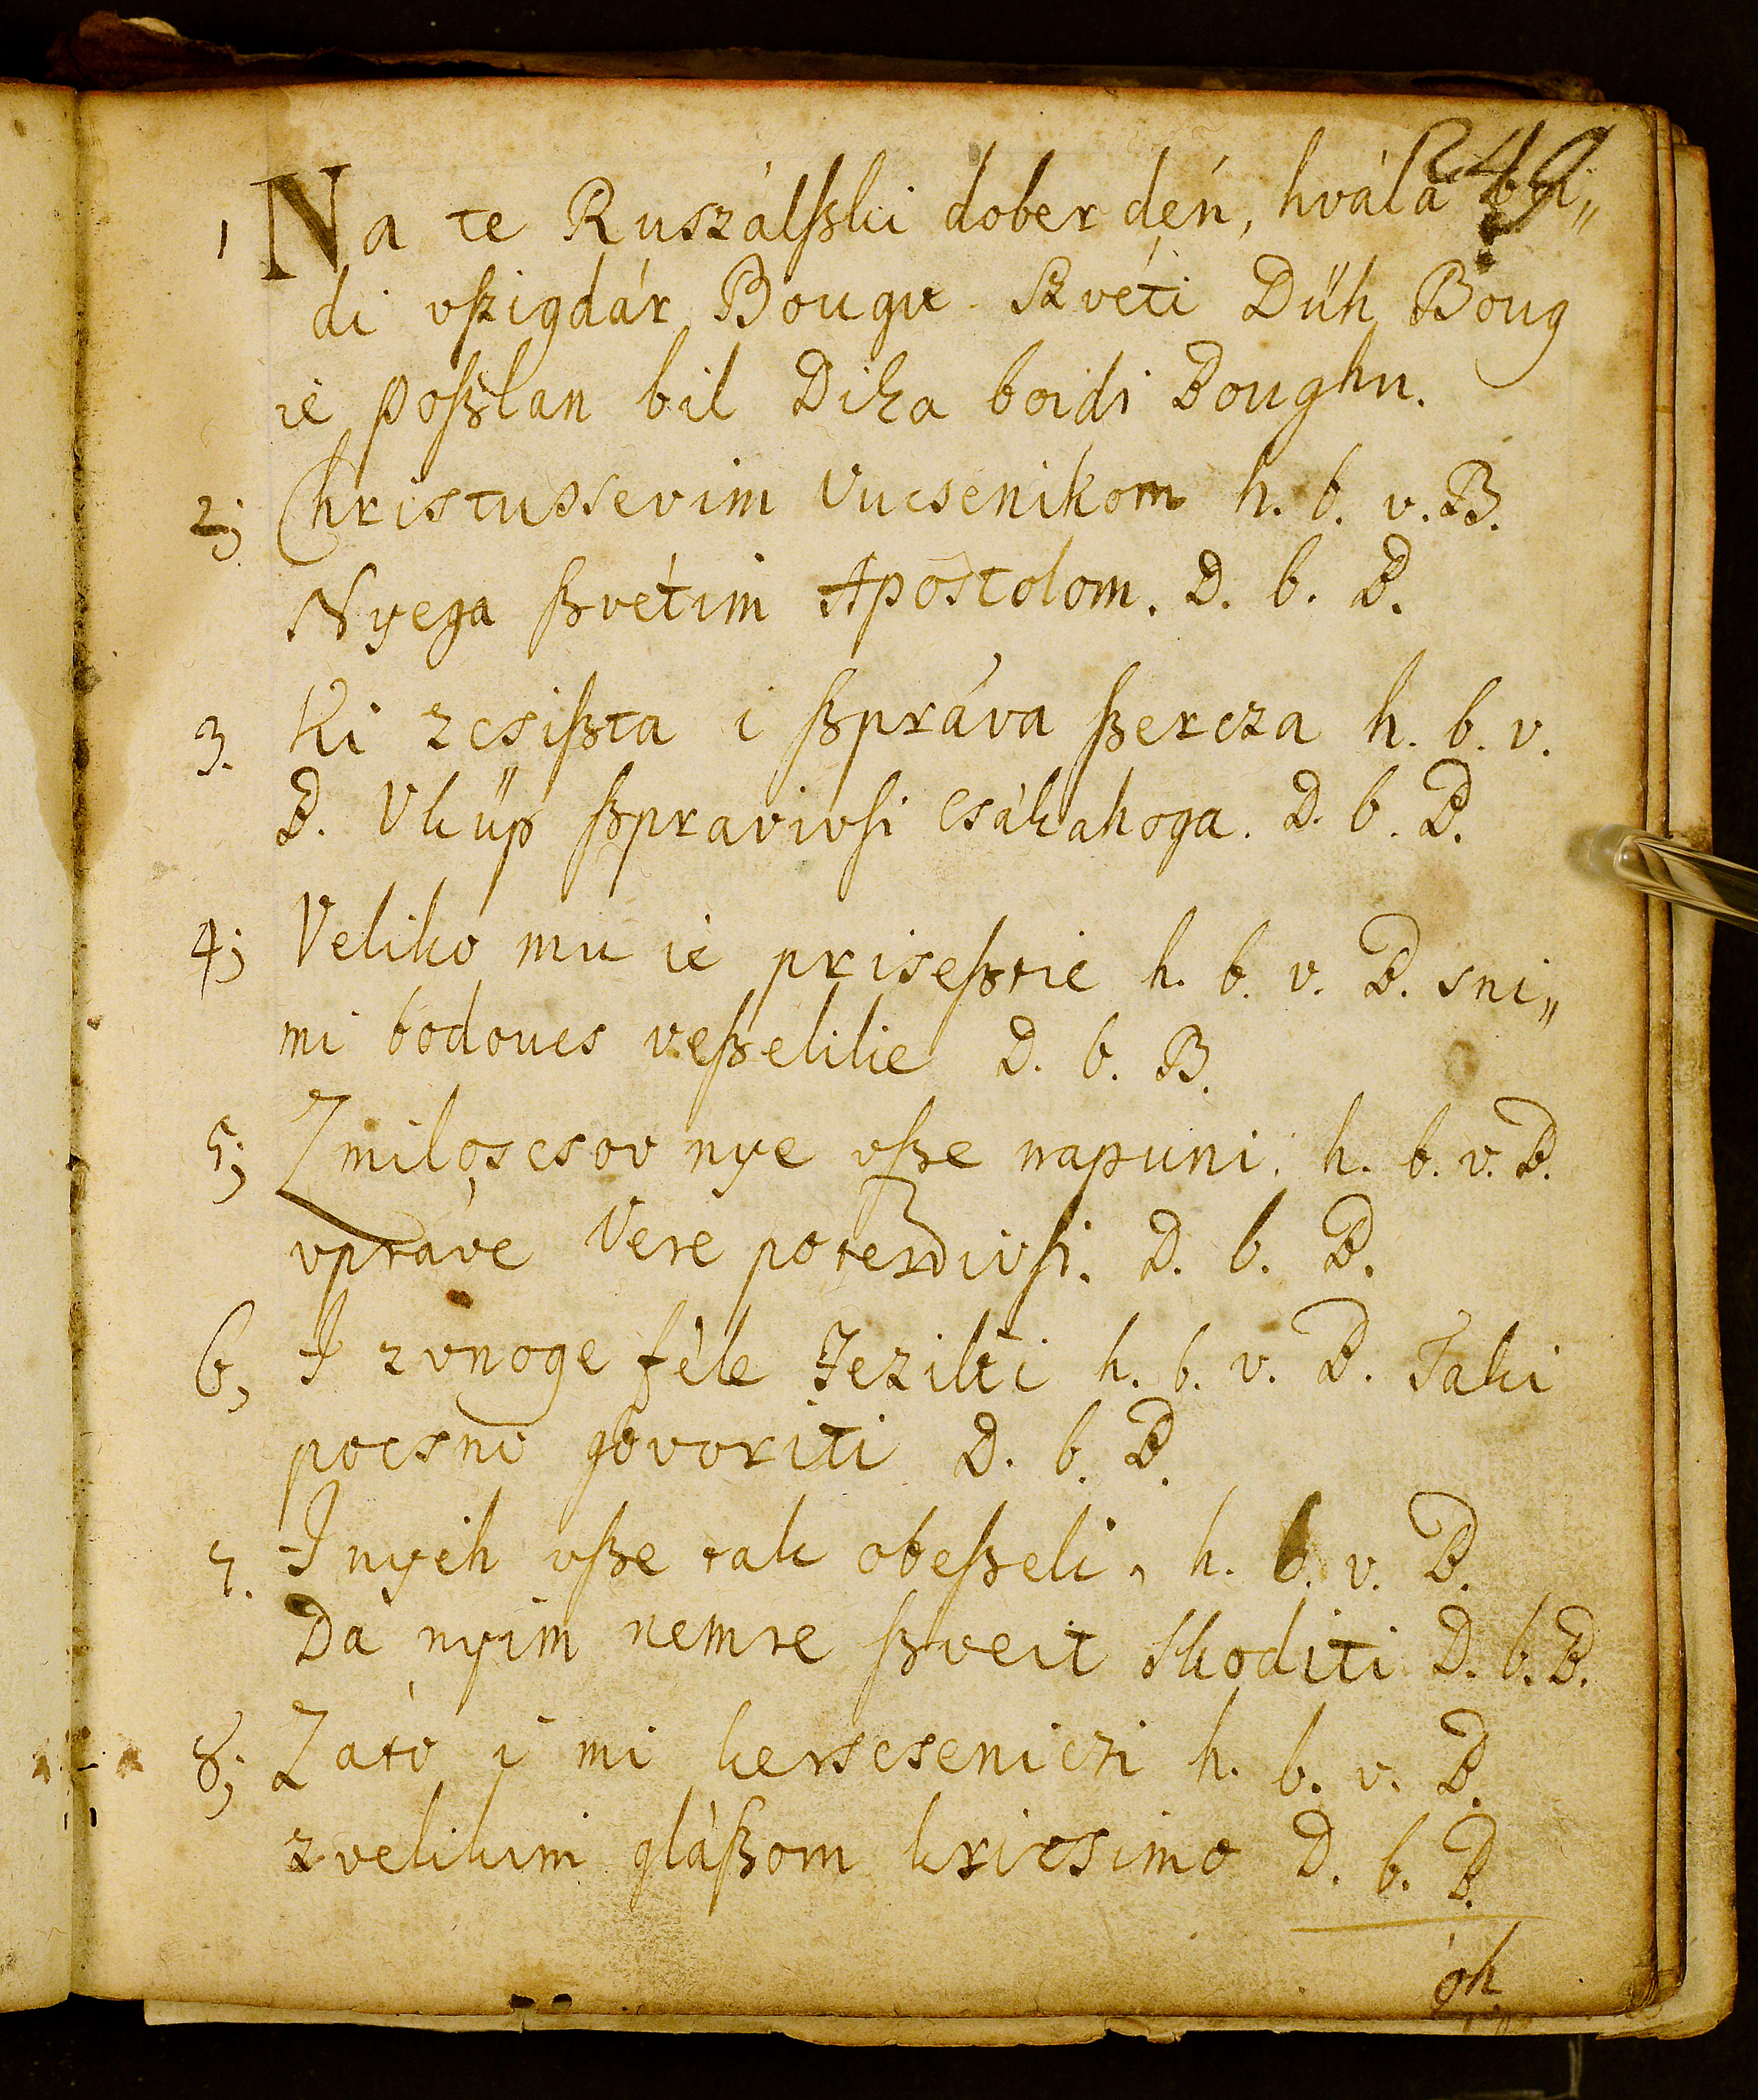 249
1 Na te Ruszálſzki dober dén, hvála boi„
di vſzigdár Bougu Szvéti Dűh Boug
ie poſzlan bil Dika boidi Boughu.
2; Christussevim Vucsenikom h. b. v. B.
Nyega ſzvétim Apostolom. D. b. B.
3. Ki zcsiſzta i ſzpráva ſzercza h. b. v.
B. Vküp ſzpravivſi csákahoga. D. b. B.
4; Veliko mu ie priseſztie h. b. v. B. sni„
mi bodoucs veſzelilie D. b. B.
5; Zmiloscsov nye vſze napuni. h. b. v. B.
vpráve Vere poterdivſi. D. b. B.
6, I zvnoge féle Jezikti h. b. v. B. Taki
pocsno govoriti D. b. B.
7. I nyih vſze tak obeſzeli, h. b. v. B.
Da nyim nemre ſzveit skoditi D. b. B.
8; Zato i mi kerscseniczi h. b. v. B.
zvelikim gláſzom kricsimo D. b. B.
oh